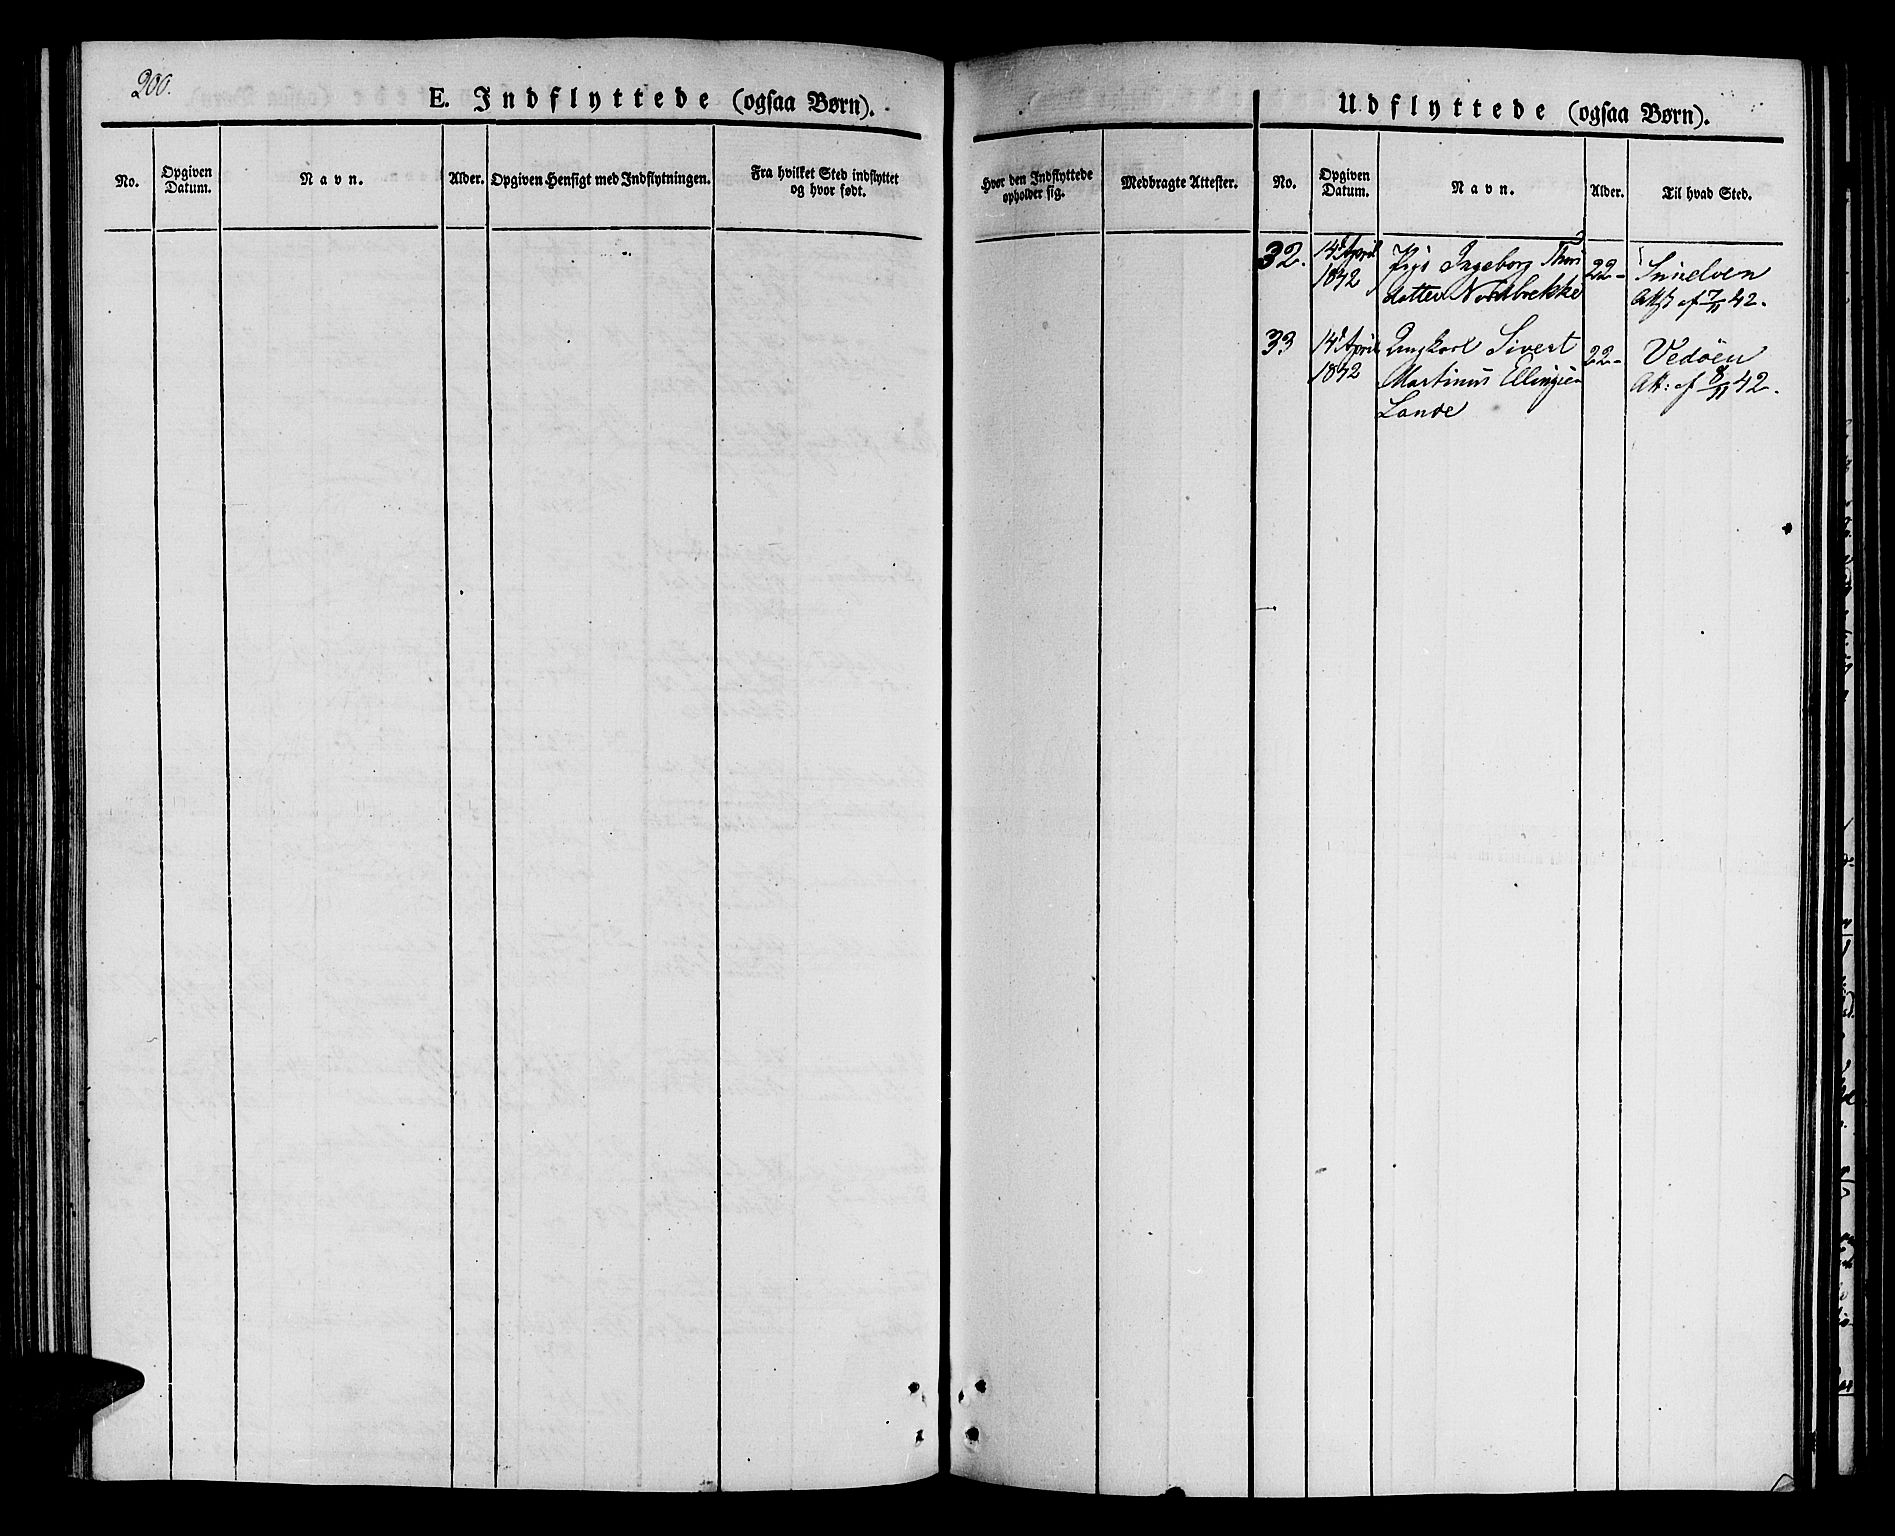 200.
E. Indflyttede (ogsaa Børn).
No.
Opgiven Datum.
Navn.
Alder.
Opgiven Hensigt med Indflytningen.
Fra hvilket Sted indflyttet
og hvor født.
Hvor den Indflyttede
opholder sig.
Medbragte Attester.
Udflyttede (ogsaa Børn).
No.
Opgiven Datum.
Navn.
Alder.
Til hvad Sted.
32.
14d April
1842
Pige Ingeborg
datter Nordbrekke
22-
Sunelven
42.
33
14d April
1842
Ungkarl Sivert
Martinus Ellingsen
Lande
22-
Vedøen
Att: af 8/11 42.